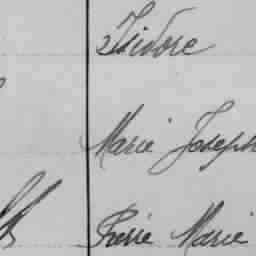 Isidore
Marie Joseph
Pierre Marie